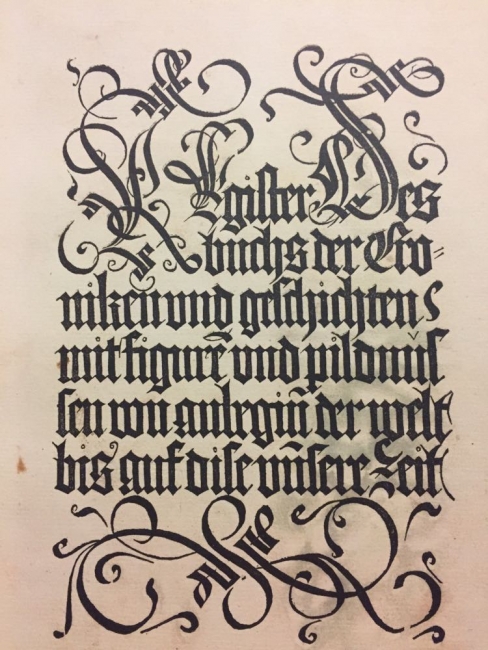 REgister Des
buchs der Cro-
niken und geschichten
mit figurē und pildnüs
sen von anbegiñ der welt
bis auf dise unnsere Zeit